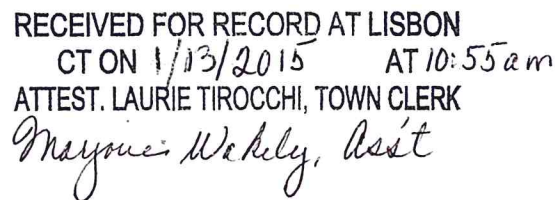 RECEIVED FOR RECORD AT LISBON
CT ON 1/13/2015 AT 10:55am
ATTEST. LAURIE TIROCCHI, TOWN CLERK
Wakely, Ass't